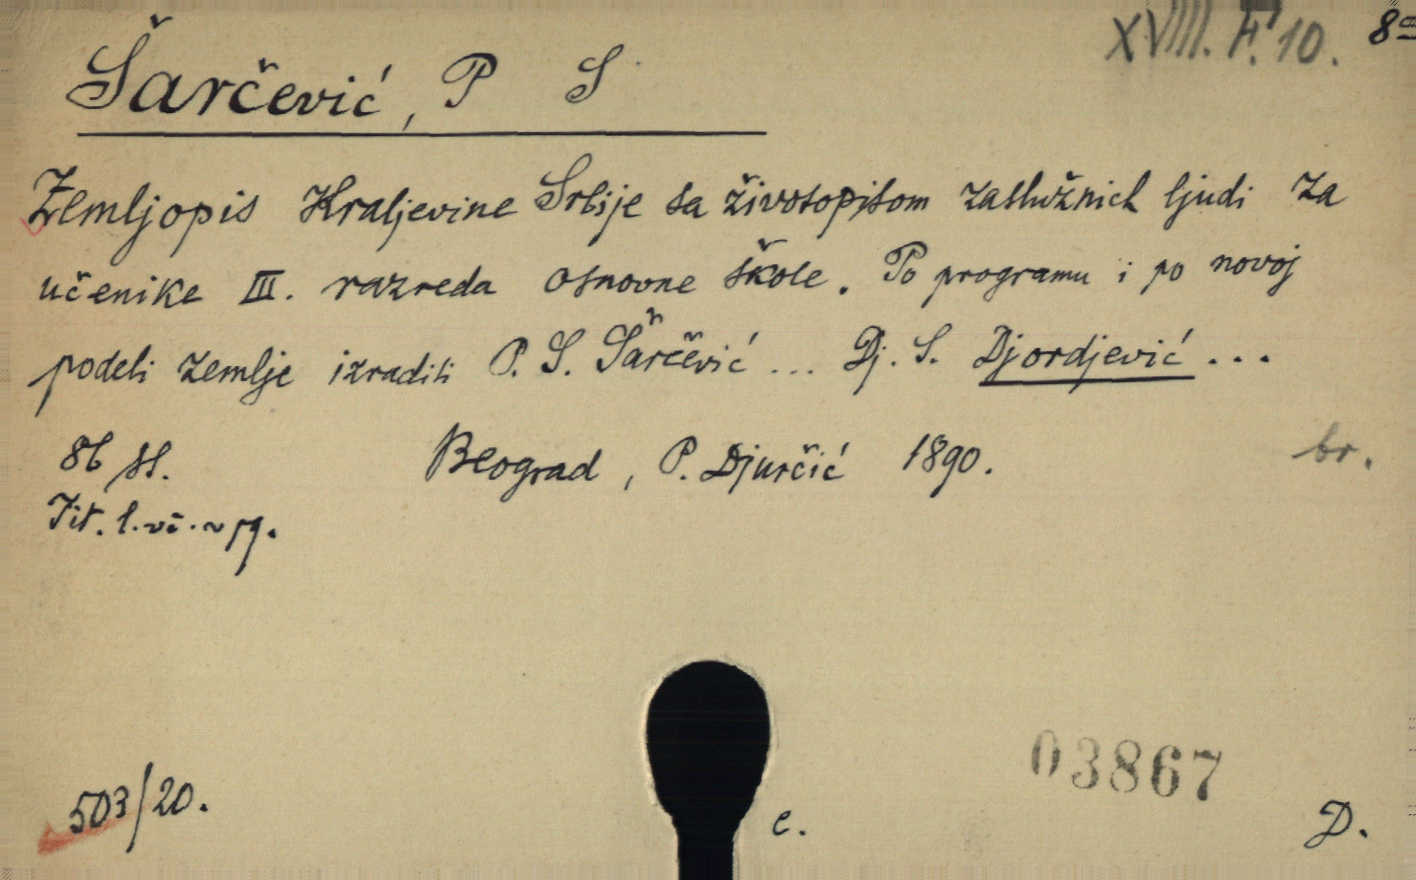 XVIII. F. 10. 8º
Šarčević, P S
Zemljopis Kraljevine Srbije sa životopisom zaslužnich ljudi za
učenike III. razreda osnovne škole. Po programu i po novoj
podeli zemlje izradili P. S. Šarčević ... Dj. S. Djordjević ...
86 st. Beograd, P. Djurčić 1890. br.
Tit. l.
03867
503/20. c. D.